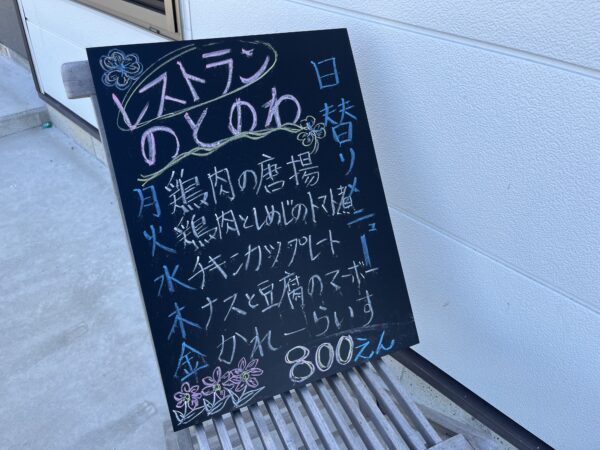 レストラン
のとのわ
日替りメニュー
月 鶏肉の唐揚
火 鶏肉としめじのトマト煮
水 チキンカツプレート
木 ナスと豆腐のマーボー
金 かれーらいす
800えん